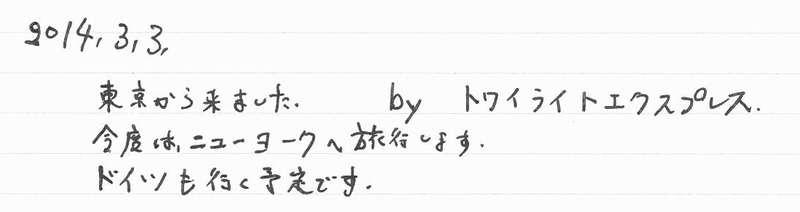 2014, 3, 3,
東京から来ました. by トワイライトエクスプレス.
今度は, ニューヨークへ旅行します.
ドイツも行く予定です.